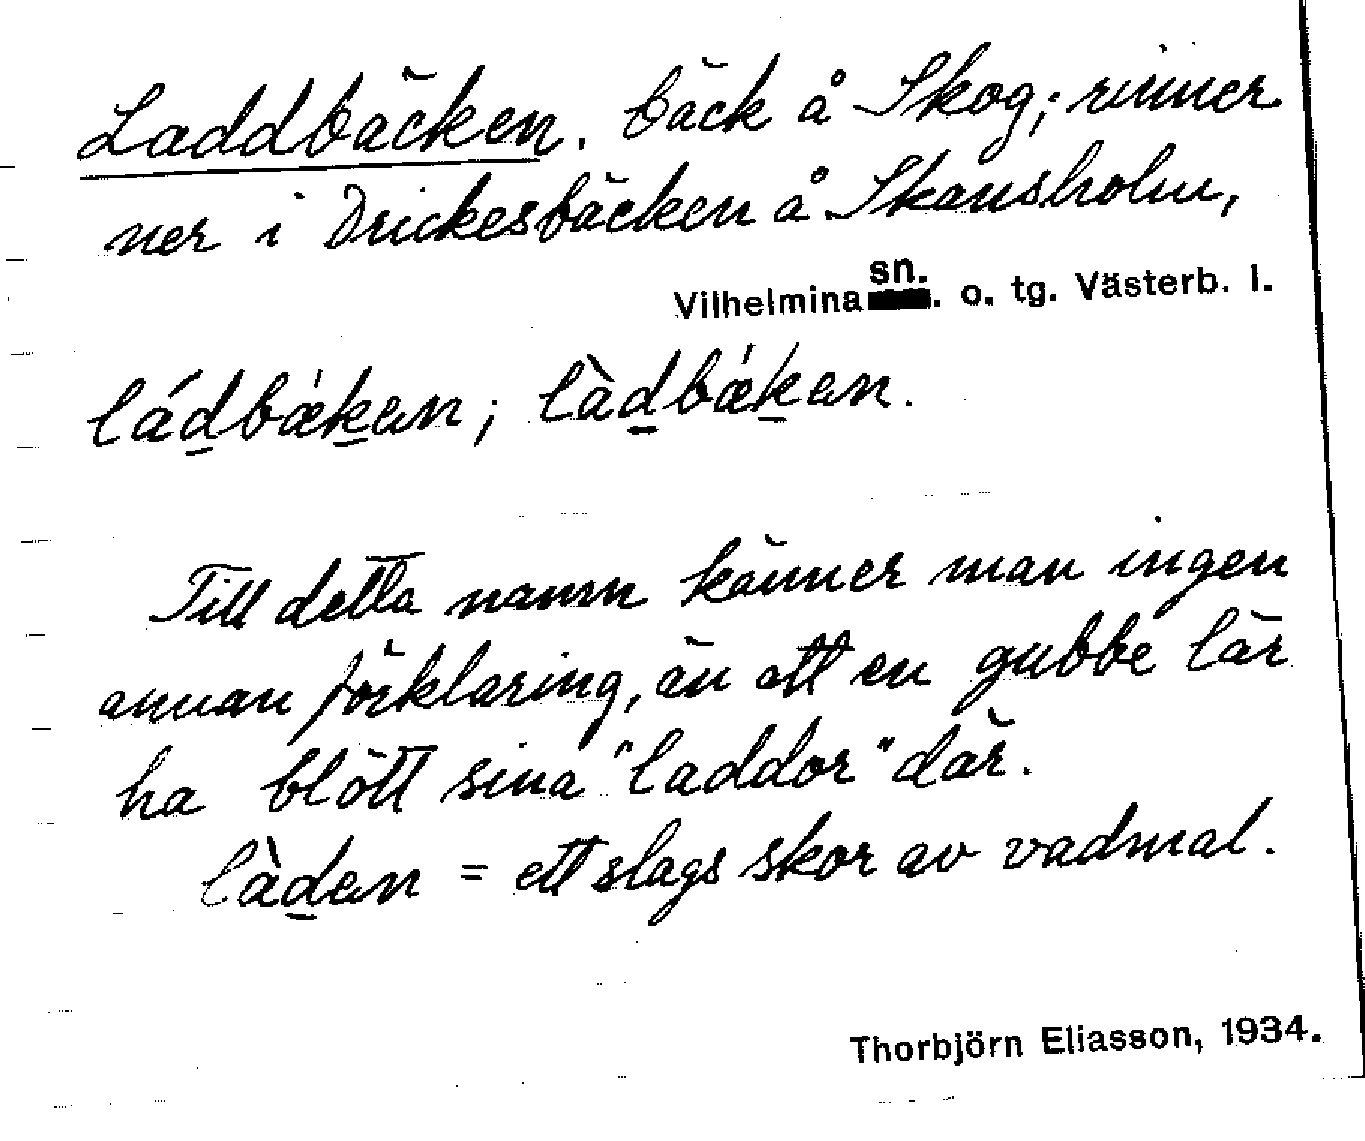 Laddbäcken. bäck å Skog; rinner
ner i Drickesbäcken å Skansholm,
Vilhelmina sn. o. tg. Västerb. l.
ládbǽken; làdbǽken.
Till detta namn känner man ingen
annan förklaring, än att en gubbe lär
ha blött sina "laddor" där.
làden = ett slags skor av vadmal.
Thorbjörn Eliasson, 1934.